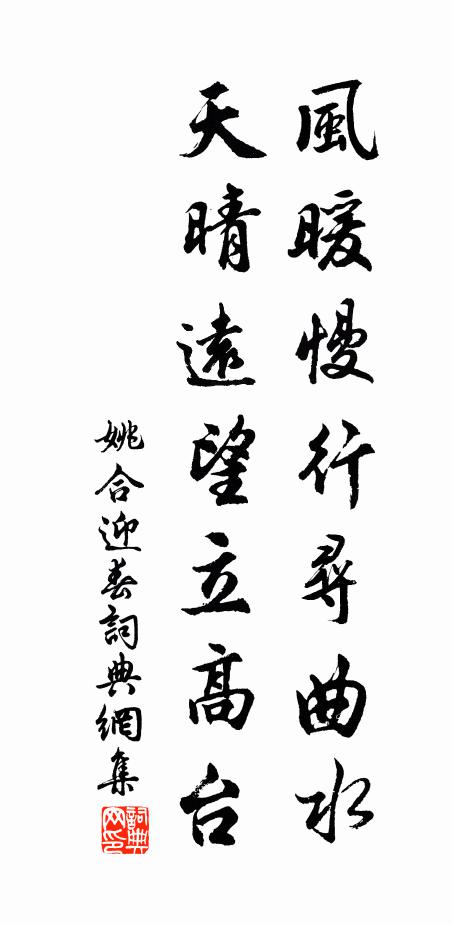 風暖慢行尋曲水
天晴遠望立高台
姚合迎春詞典網集
詞典
网印